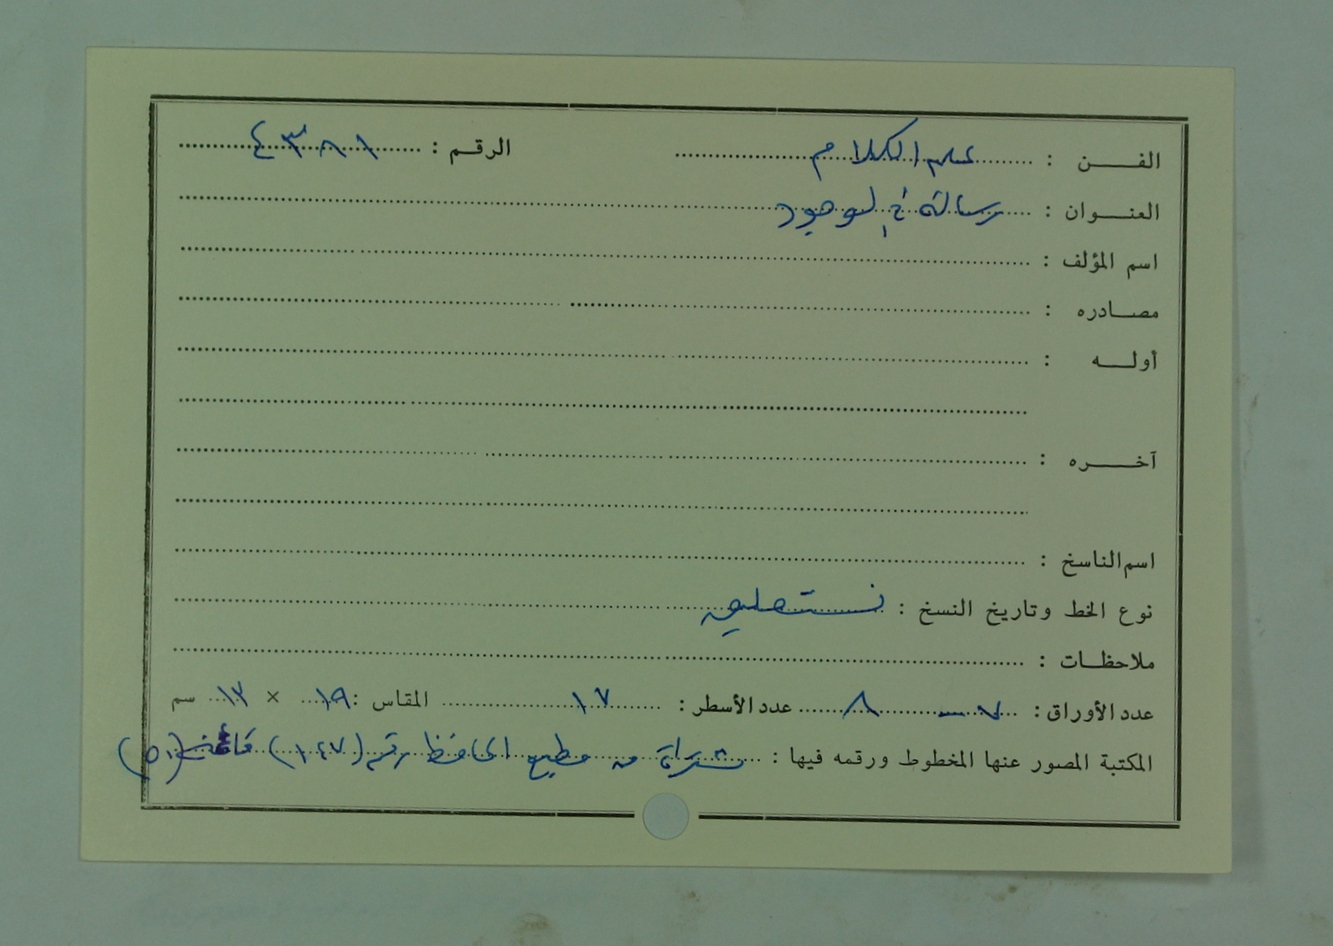 الفن : علم الكلام الرقم : ٤٣٨١
العنوان : رسالة في الوجود
اسم المؤلف :
مصادره :
أوله :
آخره :
اسم الناسخ :
نوع الخط وتاريخ النسخ : نستعليق
ملاحظات :
عدد الأوراق : ٧ - ٨ عدد الأسطر : ١٧ المقاس : ١٩ × ١٢ سم
المكتبة المصور عنها المخطوط ورقمه فيها : شراء من مطيع الحافظ رقم (١٤٧) قائمة (٥١)